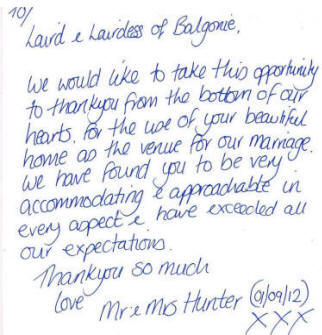 10/
Laird & Lairdess of Balgonie,
We would like to take this opportunity
to thankyou from the bottom of our
hearts, for the use of your beautiful
home as the venue for our marriage.
We have found you to be very
accommodating & approachable in
every aspect & have exceeded all
our expectations.
Thankyou so much
love Mr & Mrs Hunter (01/09/12)
XXX